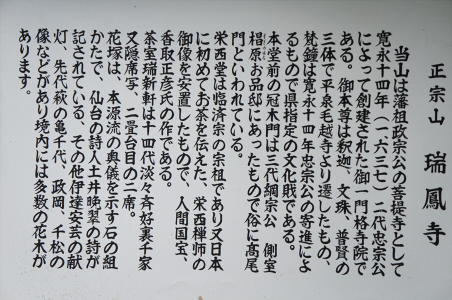 正宗山 瑞鳳寺
当山は藩祖政宗公の菩提寺として
寛永十四年（一六三七）二代忠宗公
によって創建された御一門格寺院で
ある。御本尊は釈迦、文珠、普賢の
三体で平泉毛越寺より遷したもの、
梵鐘は寛永十四年忠宗公の寄進によ
るもので県指定の文化財である。
本堂前の冠木門は三代綱宗公 側室
椙原お品邸にあったもので俗に高尾
門といわれている。
栄西堂は臨済宗の宗祖であり又日本
に初めてお茶を伝えた、栄西禅師の
御像を安置したもので、人間国宝、
香取正彦氏の作である。
茶室瑞新軒は十四代淡々斉好裏千家
又隠席写、二畳台目の二席。
花塚は、本源流の奥儀を示す石の組
かたで、仙台の詩人土井晩翠の詩が
記されている、その他伊達安芸の献
灯、先代萩の亀千代、政岡、千松の
像などがあり境内には多数の花木が
あります。